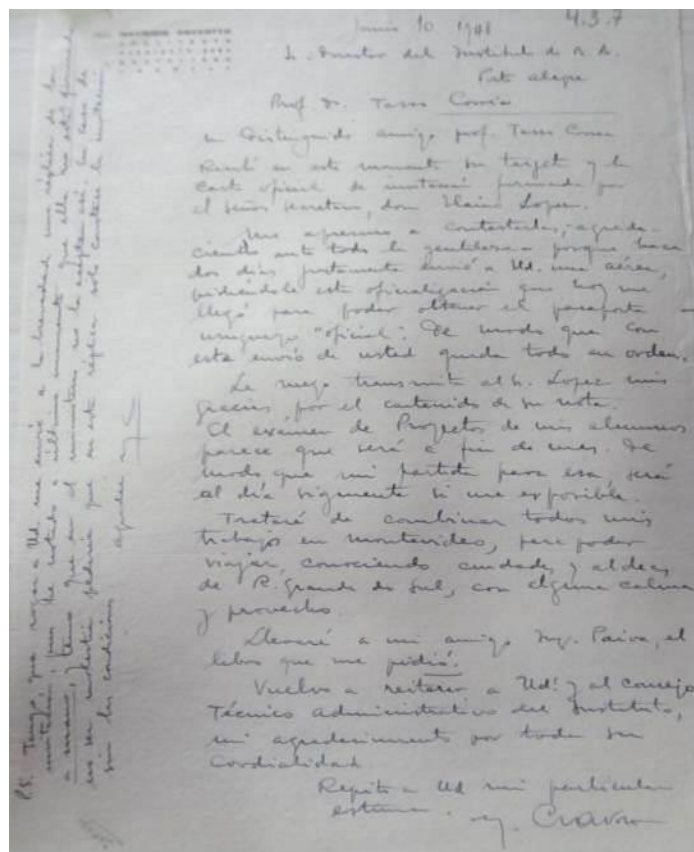 Junio 10 1948
4.3.7
Sr. Director del Instituto de B. A.
Porto Alegre
Prof. Dr. Tasso Corrêa
Distinguido amigo prof. Tasso Correa
Recibí en este momento su target y la
carta oficial de invitación firmada por
el señor secretario, don Lopez.
Me apresuro a contestarlas, agrade-
ciendo ante todo la gentileza porque hace
dos días justamente envié a Ud. una aérea,
pidiéndole esta oficialización que hoy me
llegó para poder obtener el pasaporte
uruguayo "oficial". De modo que con
este envío de usted queda todo en orden.
Le ruego transmita al Sr. Lopez mis
gracias, por el contenido de su nota.
El exámen de Proyectos de mis alumnos
parece que será a fin de mes. De
modo que mi partida para esa, será
al día siguiente si me es posible.
Trataré de combinar todos mis
trabajo en Montevideo, para poder
viajar, conociendo ciudades y aldeas
de R. Grande do Sul, con alguna calma
y provecho.
Llevaré a mi amigo Ing. Paiva, el
libro que me pidió.
Vuelvo a reiterar a Ud. y al Consejo
Técnico Administrativo del Instituto,
mi agradecimiento por toda su
cordialidad
Repito a Ud mi particular
estima. Cravo
P.S. Tengo que rogar a Ud. me envíe a la brevedad una réplica de la
invitación, pues he notado a último momento que ella no está firmada
a mano, y temo que en el ministerio no la acepten así. En caso de
no ser molestia pediría que en esta réplica solo contiene la invitación,
sin las condiciones,